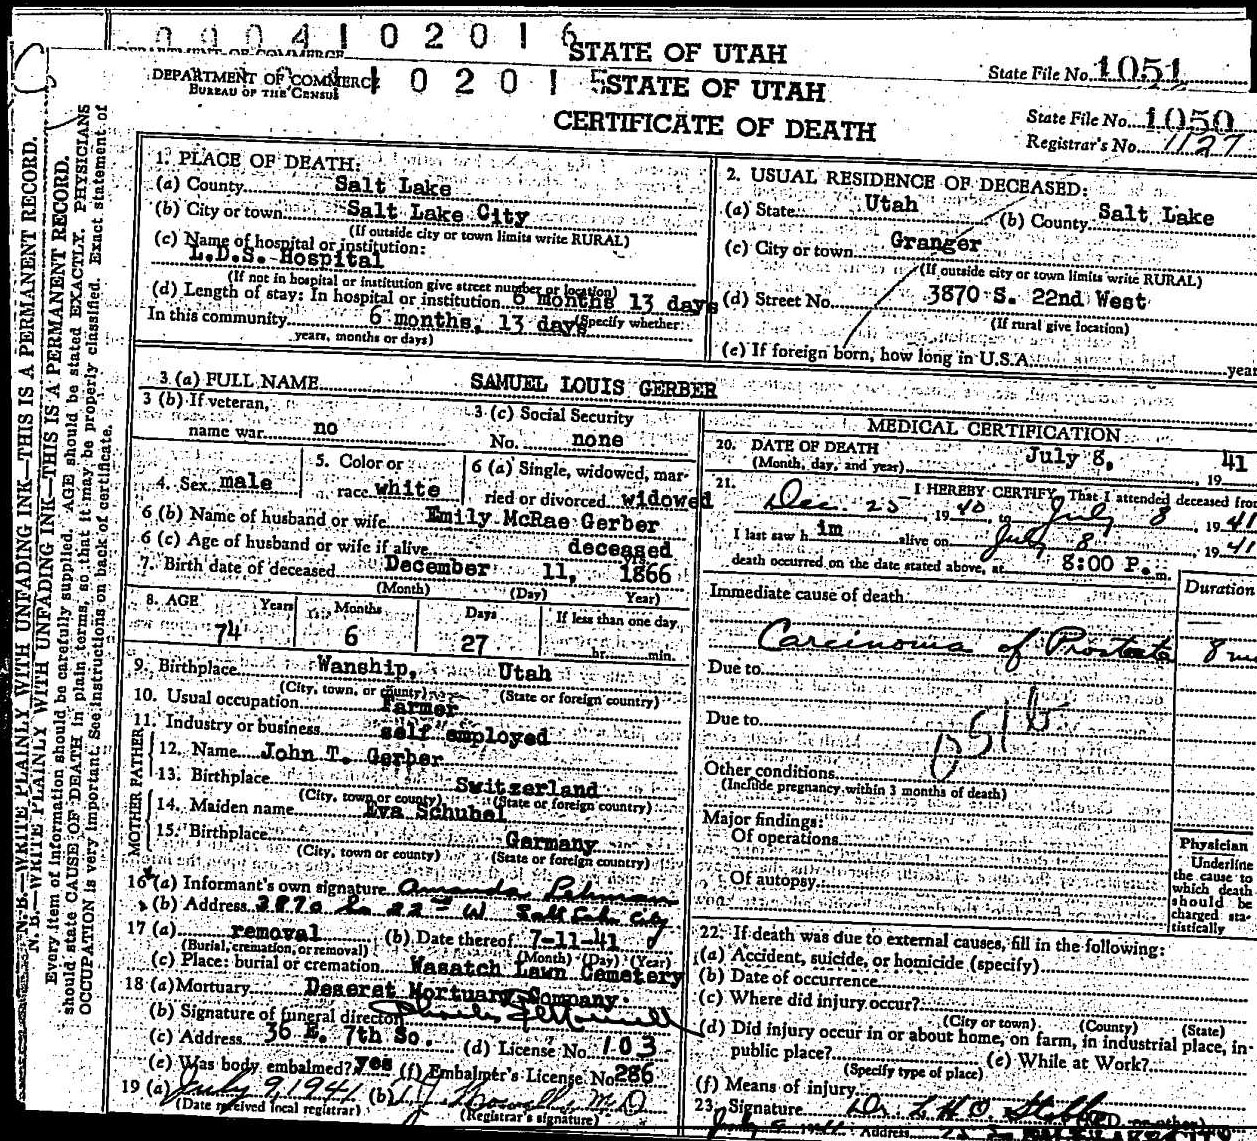 0 0 0 4 1 0 2 0 1 6
STATE OF UTAH
DEPARTMENT OF COMMERCE
State File No. 1051
DEPARTMENT OF COMMERCE 1 0 2 0 1 5 STATE OF UTAH
BUREAU OF THE CENSUS
CERTIFICATE OF DEATH
State File No. 1050
Registrar's No. 1127
N. B.—WRITE PLAINLY WITH UNFADING INK—THIS IS A PERMANENT RECORD.
N. B.—WRITE PLAINLY WITH UNFADING INK—THIS IS A PERMANENT RECORD.
Every item of information should be carefully supplied. AGE should be stated EXACTLY. PHYSICIANS
should state CAUSE OF DEATH in plain terms, so that it may be properly classified. Exact statement of
OCCUPATION is very important. See instructions on back of certificate.
1. PLACE OF DEATH:
(a) County Salt Lake
(b) City or town Salt Lake City
(If outside city or town limits write RURAL)
(c) Name of hospital or institution:
L.D.S. Hospital
(If not in hospital or institution give street number or location)
(d) Length of stay: In hospital or institution 6 months 13 days
(Specify whether
In this community 6 months, 13 days
years, months or days)
2. USUAL RESIDENCE OF DECEASED:
(a) State Utah (b) County Salt Lake
(c) City or town Granger
(If outside city or town limits write RURAL)
(d) Street No. 3870 S. 22nd West
(If rural give location)
(e) If foreign born, how long in U.S.A. year
3 (a) FULL NAME SAMUEL LOUIS GERBER
3 (b) If veteran,
name war no
3 (c) Social Security
No. none
4. Sex male
5. Color or
race white
6 (a) Single, widowed, mar-
ried or divorced widowed
6 (b) Name of husband or wife Emily McRae Gerber
6 (c) Age of husband or wife if alive deceased
7. Birth date of deceased December 11, 1866
(Month) (Day) Year)
8. AGE Years Months Days If less than one day
74 6 27 hr. min.
9. Birthplace Wanship, Utah
(City, town, or county) (State or foreign country)
10. Usual occupation Farmer
11. Industry or business self employed
FATHER
12. Name John T. Gerber
13. Birthplace Switzerland
(City, town or county) (State or foreign country)
MOTHER
14. Maiden name Eva Schubel
15. Birthplace Germany
(City, town or county) (State or foreign country)
16 (a) Informant's own signature Amanda Pehrson
(b) Address 3870 So 22nd W Salt Lake City
17 (a) removal (b) Date thereof 7-11-41
(Burial, cremation, or removal) (Month) (Day) (Year)
(c) Place: burial or cremation Wasatch Lawn Cemetery
18 (a) Mortuary Deseret Mortuary Company
(b) Signature of funeral director
(c) Address 36 E. 7th So. (d) License No. 103
(e) Was body embalmed? yes (f) Embalmer's License No. 286
19 (a) July 9, 1941 (b) M D
(Date received local registrar) (Registrar's signature)
MEDICAL CERTIFICATION
20. DATE OF DEATH
(Month, day, and year) July 8, 19 41
21. I HEREBY CERTIFY, That I attended deceased from
Dec. 25 19 40 to July 8, 19 41
I last saw h im alive on July 8, 19 41
death occurred on the date stated above, at 8:00 P. m.
Immediate cause of death Duration
Carcinoma of Prostate 8 mo
Due to
Due to
051b
Other conditions
(Include pregnancy within 3 months of death)
Major findings:
Of operations
Of autopsy
Physician
Underline
the cause to
which death
should be
charged sta-
tistically
22. If death was due to external causes, fill in the following:
(a) Accident, suicide, or homicide (specify)
(b) Date of occurrence
(c) Where did injury occur?
(City or town) (County) (State)
(d) Did injury occur in or about home, on farm, in industrial place, in-
public place? (e) While at Work?
(Specify type of place)
(f) Means of injury
23. Signature Dr. L.H.O.
July 8 1941 Address